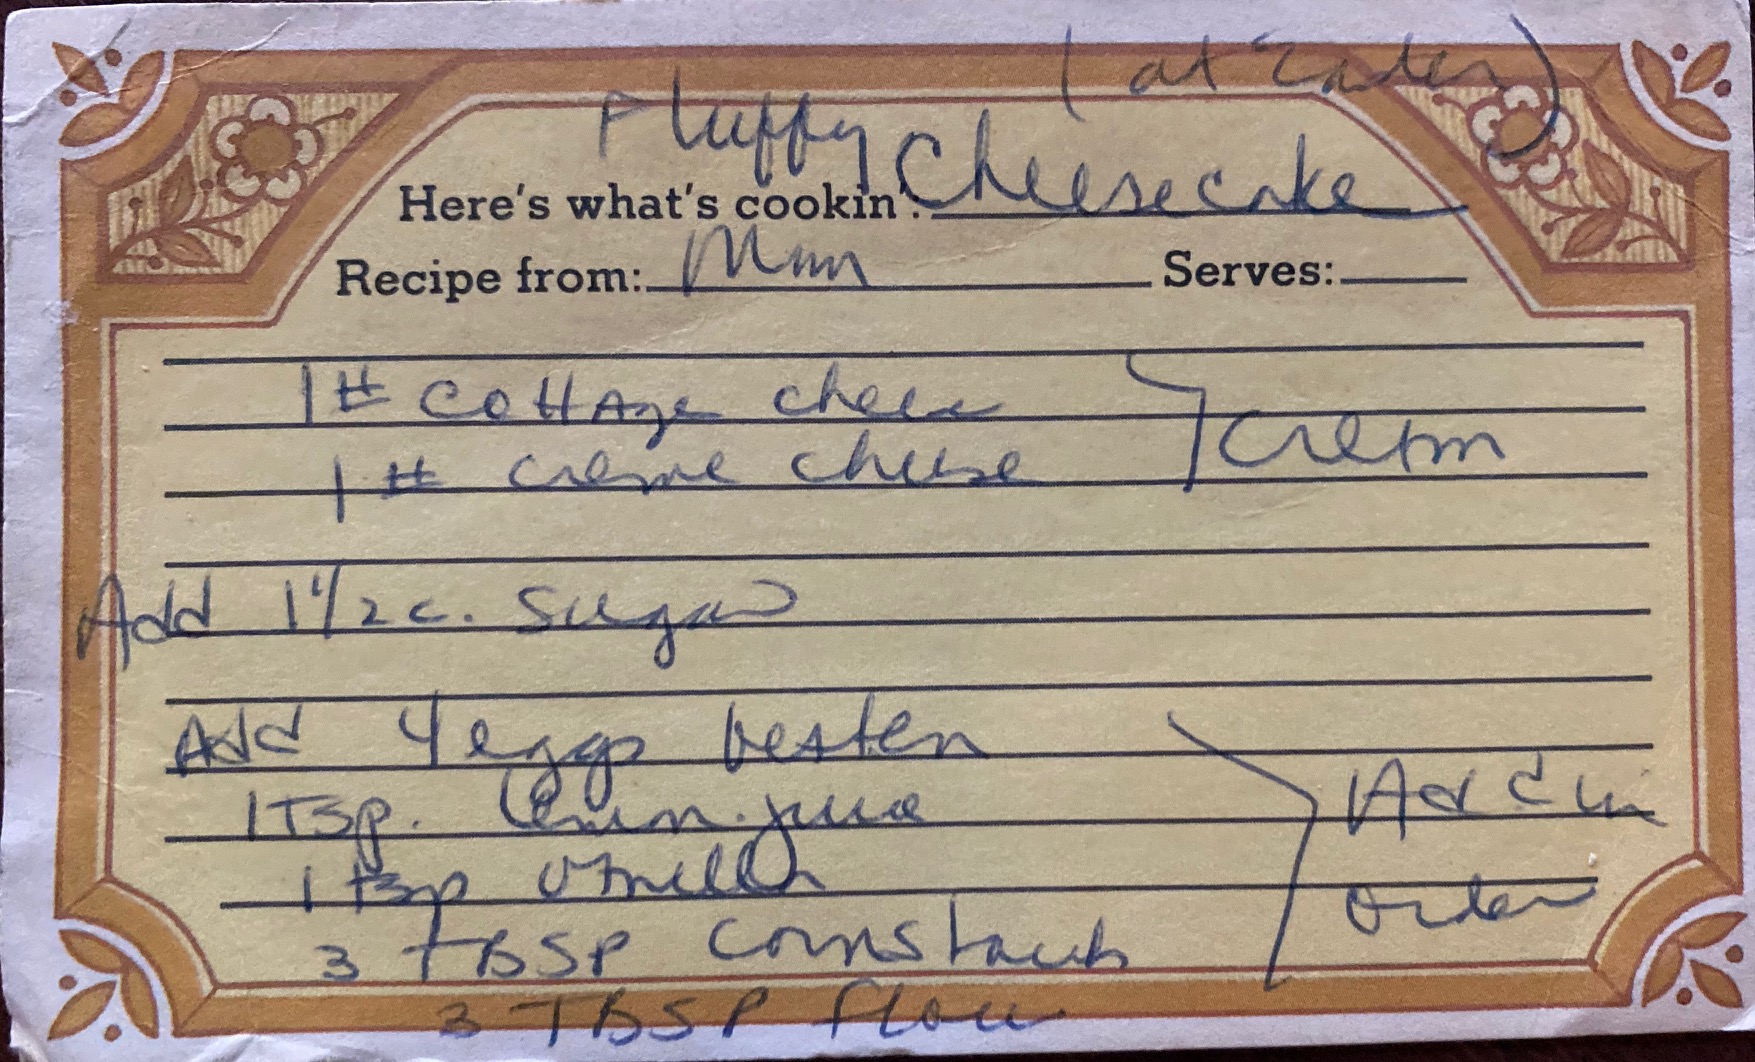 (at Easter)
Fluffy
Here's what's cookin': Cheesecake
Recipe from: Mom Serves:
1# Cottage cheese
1# creme cheese } Cream
Add 1 1/2 c. Sugar
Add 4 eggs beaten
1 Tsp. lemon juice
1 tsp vanilla
3 TBSP cornstarch
3 TBSP flour
Add in
order